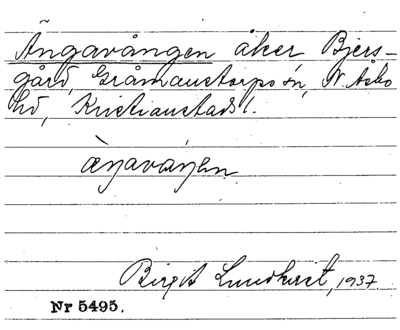 Ängavången åker Bjers-
gård, Gråmanstorps sn, N. Åsbo
hd, Kristianstads l.
Birgit Lundkvist, 1937
Nr 5495.